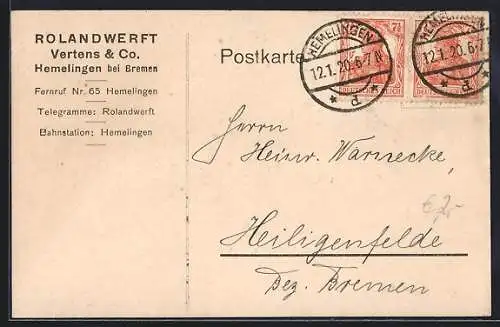 ROLANDWERFT
Vertens & Co.
Hemelingen bei Bremen
Fernruf Nr. 65 Hemelingen
Telegramme: Rolandwerft
Bahnstation: Hemelingen
Postkarte
HEMELINGEN
12.1.20.6-7N
* d *
7½
HEMELINGEN
12.1.20.6-7
* d *
Herrn
Heinr. Warnecke,
Heiligenfelde
Bez. Bremen